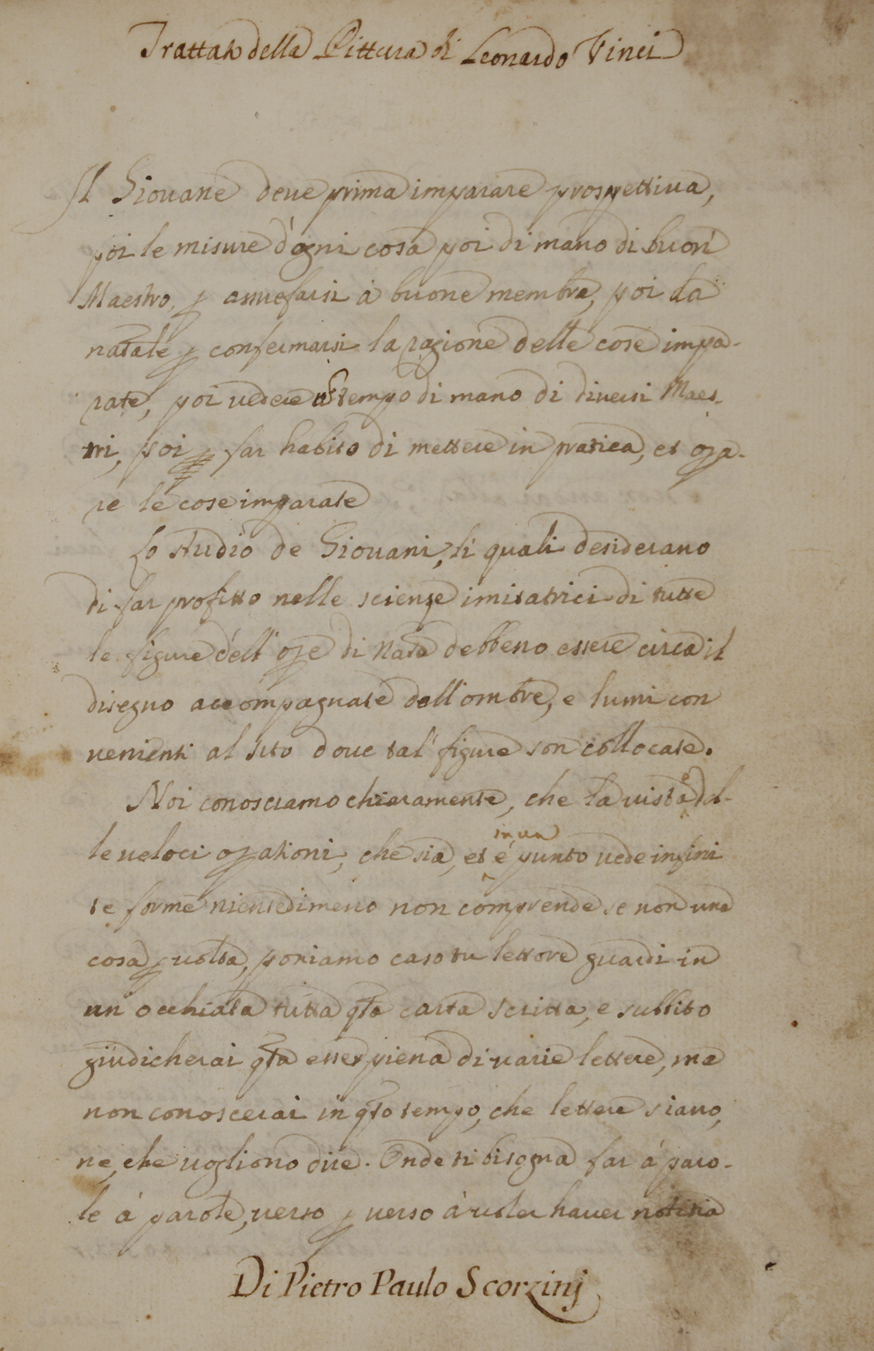 Trattato della Pittura di Leonardo Vinci
Il Giouane deue prima imparare prospettiua,
poi le misure d'ogni cosa poi di mano di buon
Maestro, p assuefarsi à buone membra, poi da
natale p confermarsi la ragione delle cose impa-
rate, poi uedere tempo di mano di diuersi Maes-
tri, poi p far habito di mettere in pratica, et opa-
re le cose imparate
Lo studio de Giouani, li quali desiderano
di far profitto nelle scienze imitatrici di tutte
le figure dell'ope di Nata debbeno essere circa il
disegno accompagnate dall'ombre, e lumi con
uenienti al sito doue tal' figure son collocate.
Noi conosciamo chiaramente, che la uista è del-
le ueloci opationi, che sia, et in un punto uede infini
te forme nientedimeno non comprende se non una
cosa p uolta, poniamo caso tu lettore guardi in
un occhiata tutta qta carta scritta, e subbito
giudicherai qta esser piena di uarie lettere, ma
non conoscerai in qto tempo, che lettere siano,
ne, che uogliono dire. Onde ti bisogna far à paro-
le à parole, uerso p uerso à uoler hauer notitia
Di Pietro Paulo Scorzinj